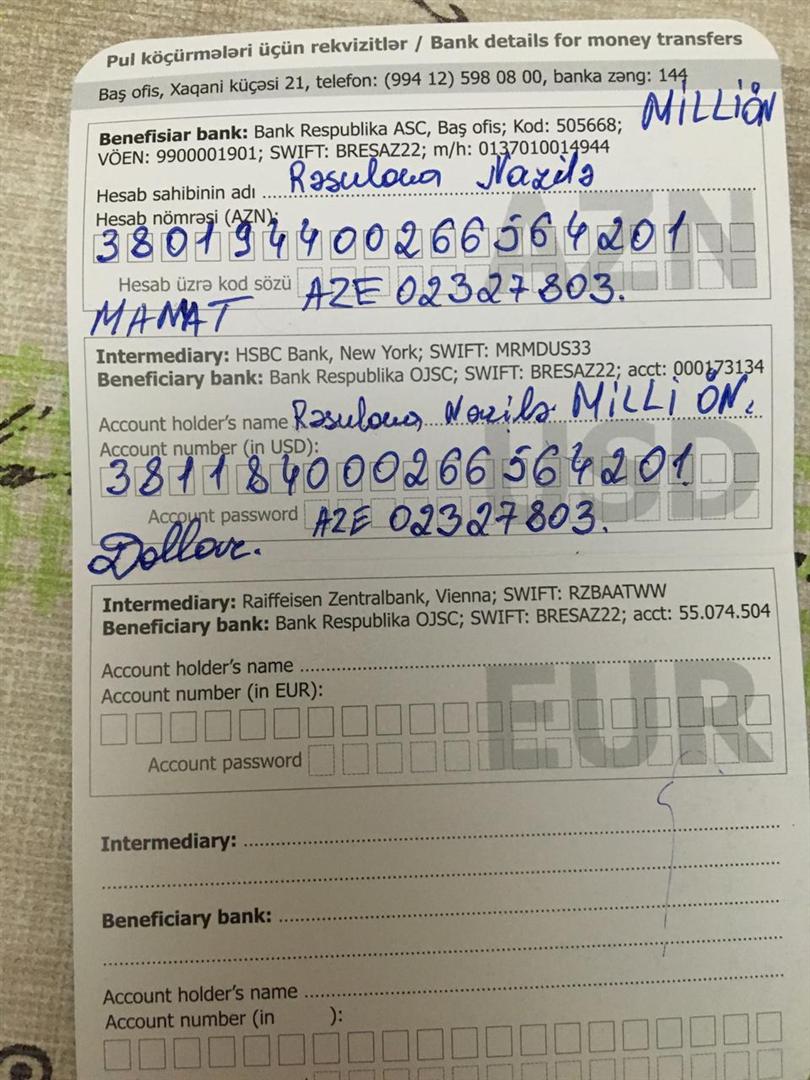 Pul köçürmələri üçün rekvizitlər / Bank details for money transfers
Baş ofis, Xaqani küçəsi 21, telefon: (994 12) 598 08 00, banka zəng: 144
MİLLİÖN
Benefisiar bank: Bank Respublika ASC, Baş ofis; Kod: 505668;
VÖEN: 9900001901; SWIFT: BRESAZ22; m/h: 0137010014944
Hesab sahibinin adı Rəsulova Nazilə
Hesab nömrəsi (AZN):
380194400266564201
AZN
Hesab üzrə kod sözü AZE 02327803.
MANAT
Intermediary: HSBC Bank, New York; SWIFT: MRMDUS33
Beneficiary bank: Bank Respublika OJSC; SWIFT: BRESAZ22; acct: 000173134
Account holder's name Rəsulova Nazilə MİLLİ ÖN.
Account number (in USD):
381184000266564201
USD
Account password AZE 02327803.
Dollar.
Intermediary: Raiffeisen Zentralbank, Vienna; SWIFT: RZBAATWW
Beneficiary bank: Bank Respublika OJSC; SWIFT: BRESAZ22; acct: 55.074.504
Account holder's name
Account number (in EUR):
EUR
Account password
Intermediary:
Beneficiary bank:
Account holder's name
Account number (in ):